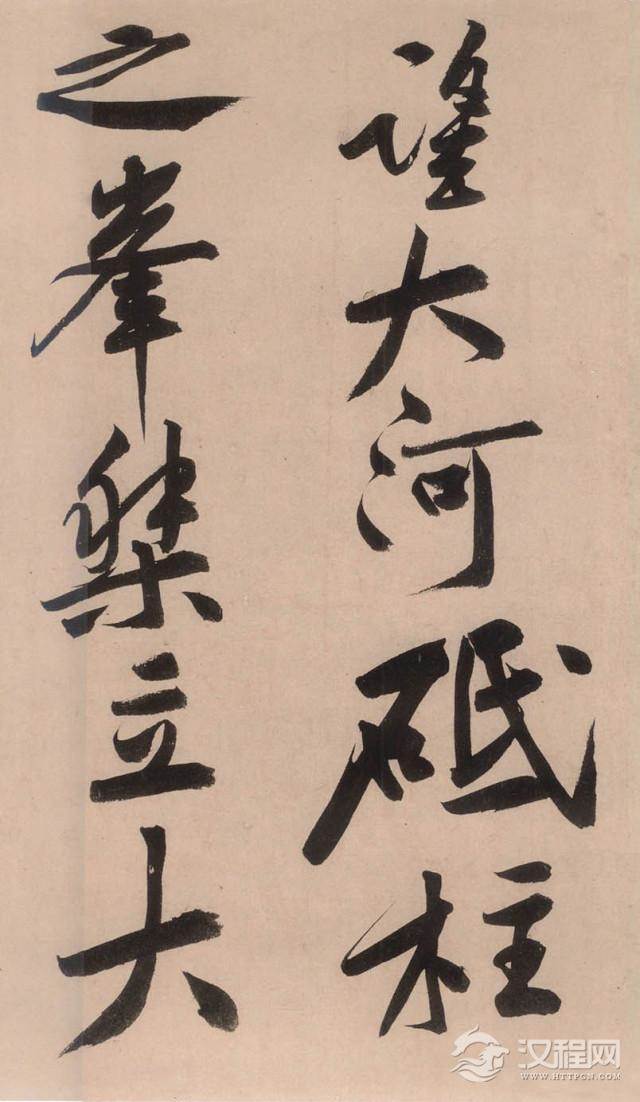 望大河砥柱
之峯桀立大
汉程网
WWW.HTTPCN.COM